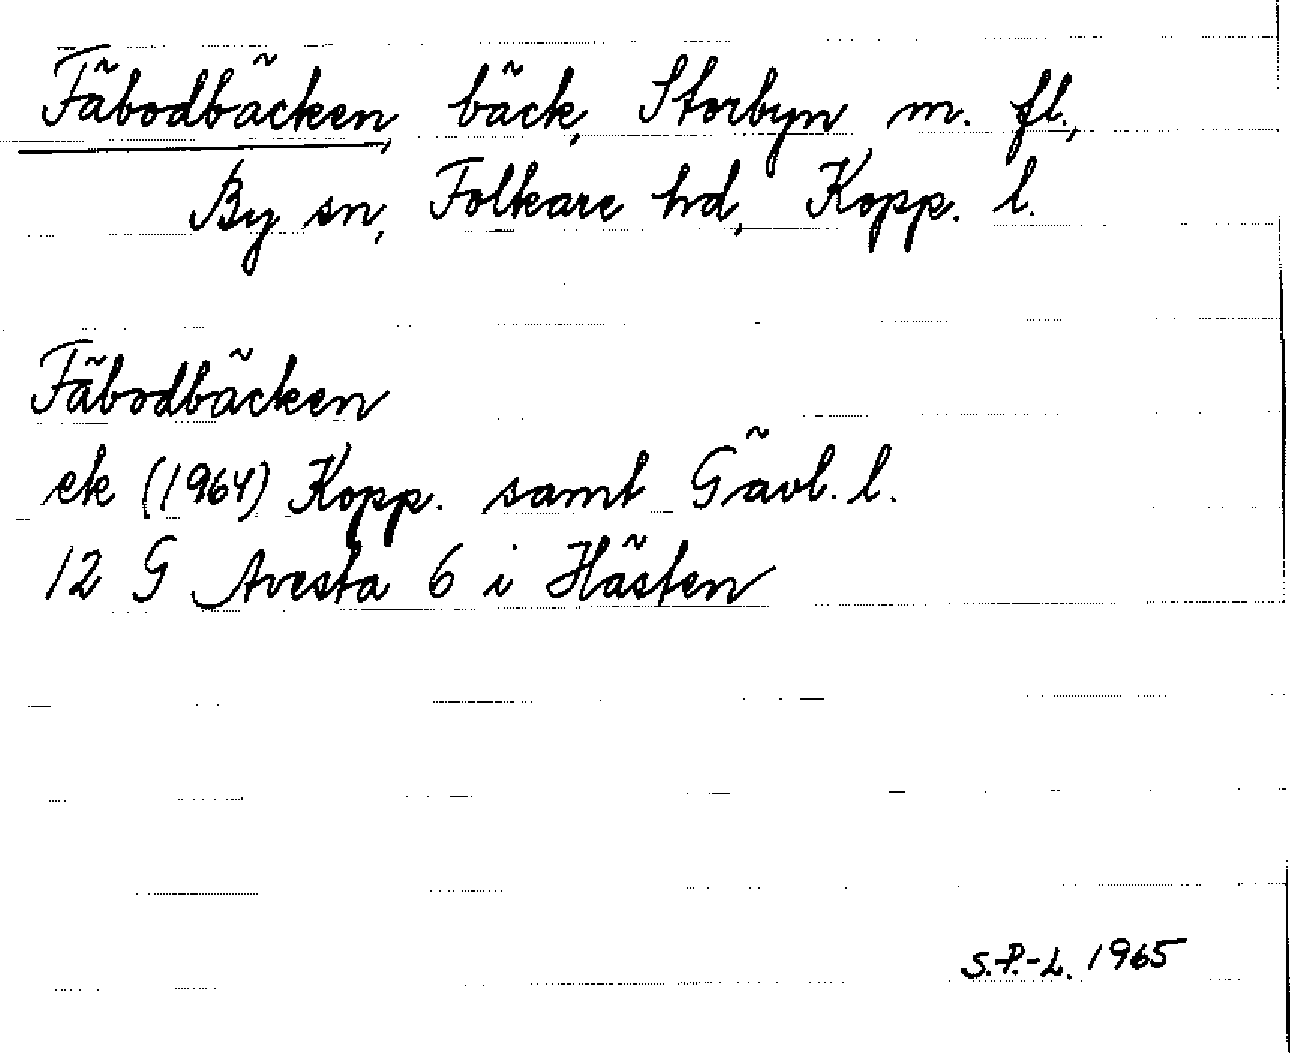 Fäbodbäcken, bäck, Storbyn m. fl.,
By sn, Folkare hd, Kopp. l.
Fäbodbäcken
ek (1964) Kopp. samt Gävl. l.
12 G Avesta 6 i Hästen
S.-P.-L. 1965